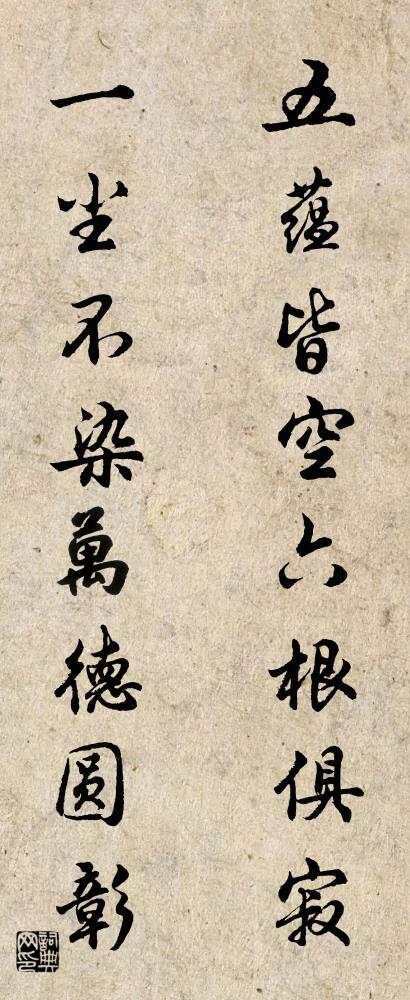 五蕴皆空六根俱寂
一尘不染萬德圆彰
詞典网印